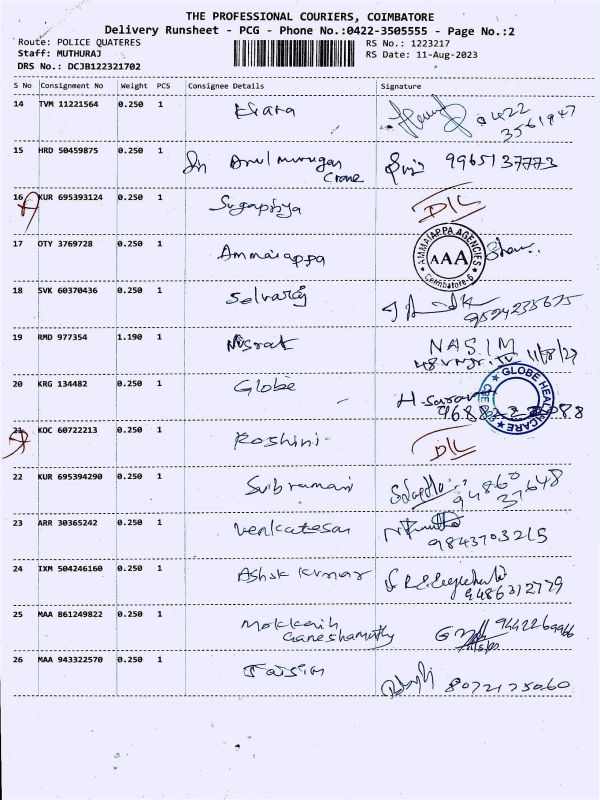 THE PROFESSIONAL COURIERS, COIMBATORE
Delivery Runsheet - PCG - Phone No.:0422-3505555 - Page No.:2
Route: POLICE QUATERES
RS No.: 1223217
Staff: MUTHURAJ
RS Date: 11-Aug-2023
DRS No.: DCJB122321702
S No Consignment No Weight PCS Consignee Details Signature
14 TVM 11221564 0.250 1 0422
3561947
15 HRD 50459875 0.250 1 Sri Arul Murugan 9965137773
Crane
16 KUR 695393124 0.250 1 Sugapriya D/L
17 OTY 3769728 0.250 1 Ammaiappa AMMAIAPPA AGENCIES AAA Coimbatore-6
18 SVK 60370436 0.250 1 Selvaraj
9524235675
19 RMD 977354 1.190 1 Nisrat NASIM
11/8/23
20 KRG 134482 0.250 1 Globe H. Saravan GLOBE HEALTHCARE
21 KOC 60722213 0.250 1 Roshini D/L
22 KUR 695394290 0.250 1 Subramani 94860
37648
23 ARR 30365242 0.250 1 Venkatesan
9843703215
24 IXM 504246160 0.250 1 Ashok Kumar
9486312779
25 MAA 861249822 0.250 1 Mokkaih 9442269966
Ganeshamothy
26 MAA 943322570 0.250 1 Jaisim 8072175060